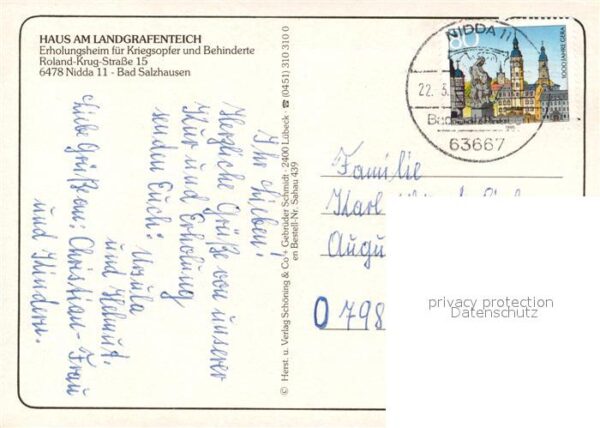 HAUS AM LANDGRAFENTEICH
Erholungsheim für Kriegsopfer und Behinderte
Roland-Krug-Straße 15
6478 Nidda 11 - Bad Salzhausen
Ihr Lieben!
Herzliche Grüße von unserer
Kur und Erholung
senden Euch:
Ursula
und Helmut.
Liebe Grüße an: Christian - Frau
und Kindern.
© Herst. u. Verlag Schöning & Co + Gebrüder Schmidt - 2400 Lübeck ☎ (0451) 310 310 0
en Bestell-Nr. Sahau 439
NIDDA 11
22. 3.
63667
80
1000 JAHRE GERA
Familie
Karl
Augu
0 798
privacy protection
Datenschutz